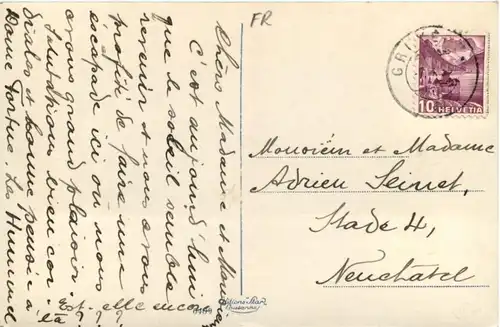 Chère Madame et Monsieur
C'est aujourd'hui
que le soleil semble
revenir et nous avons
profité de faire une
escapade ici où nous
avons grand plaisir.
Salutations bien cor-
diales et bonne pensée à
Dame Tortue. Les Hummel
Est-elle encore
là ? ?
FR
10 HELVETIA
Monsieur et Madame
Adrien Seinet,
Stade 4,
Neuchatel